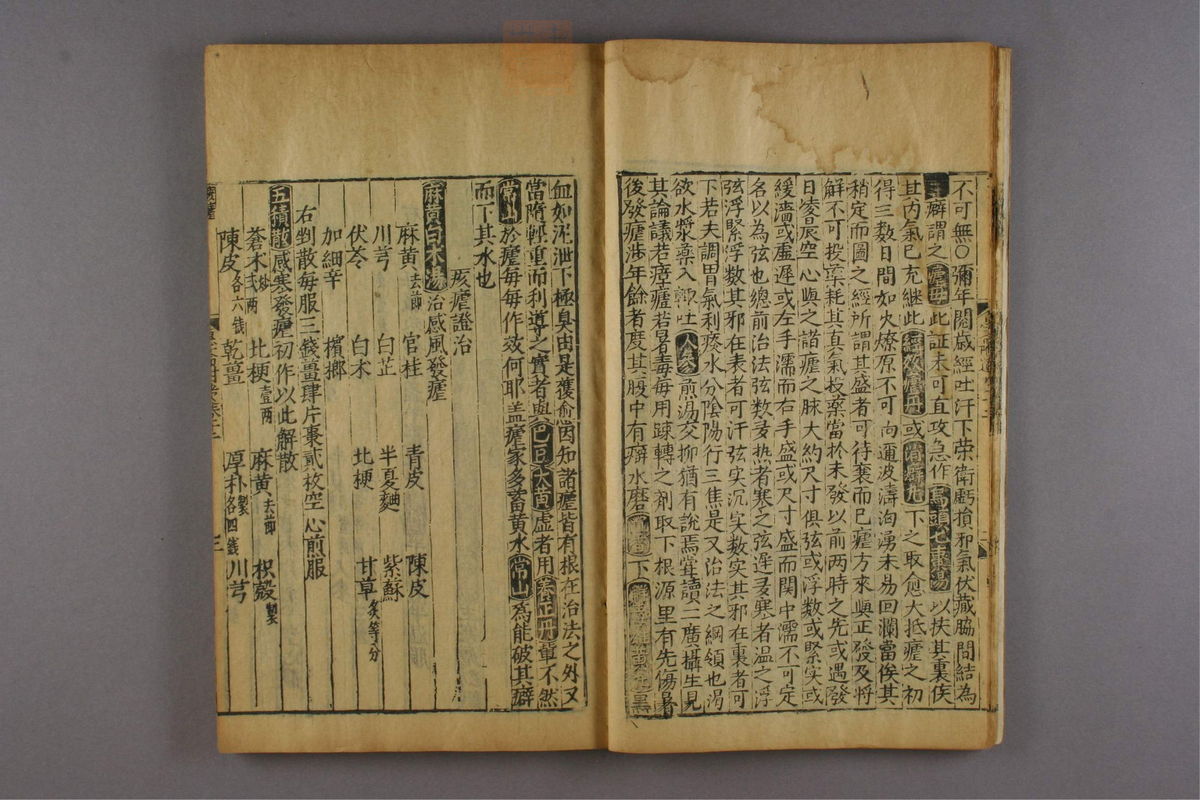 不可無○彌年閱歲經吐汗下榮衛虧損邪氣伏藏脇間結為
癖謂之瘧母此証未可直攻急作烏頭七棗湯以扶其裏俟
其內氣已充継此經效瘧丹或消癖丸下之取愈大抵瘧之初
得三數日間如火燎原不可向邇波濤洶湧未易回瀾當俟其
稍定而圖之經所謂其盛者可待衰而已瘧方來與正發及將
解不可投藥耗其真氣投藥當於未發以前兩時之先或遇發
日凌晨空心與之諸瘧之脉大約尺寸俱弦或浮數或緊实或
緩濇或虛遲或左手濡而右手盛或尺寸盛而関中濡不可定
名以為弦也總前治法弦数多热者寒之弦遲多寒者温之浮
弦浮緊浮数其邪在表者可汗弦实沉实数实其邪在裏者可
下若夫調胃氣利痰水分陰陽行三焦是又治法之綱領也渴
欲水漿藥入輙吐人參煎湯交柳猶有說焉嘗讀二廣攝生見
其論議若瘴瘧若暑毒每用踈轉之剤取下根源里有先傷暑
後發瘧渉年餘者度其腹中有癖水磨下
血如泥泄下極臭由是獲愈因知諸瘧皆有根在治法之外又
當隋輕重而利導之實者與巴豆大黃虛者用養正丹重不然
常山於瘧每每作效何耶盖瘧家多蓄黃水常山為能破其癖
而下其水也
痎瘧證治
麻黃白术湯治感風發瘧
麻黃去節 官桂 青皮 陳皮
川芎 白芷 半夏麯 紫蘇
伏苓 白术 北梗 甘草炙等分
加細辛 檳榔
右剉散每服三錢薑肆片棗貳枚空心煎服
五積散感寒發瘧初作以此解散
蒼术炒弍兩 北梗壹兩 麻黃去節 枳殼製
陳皮各六錢 乾薑 厚朴製各四錢 川芎